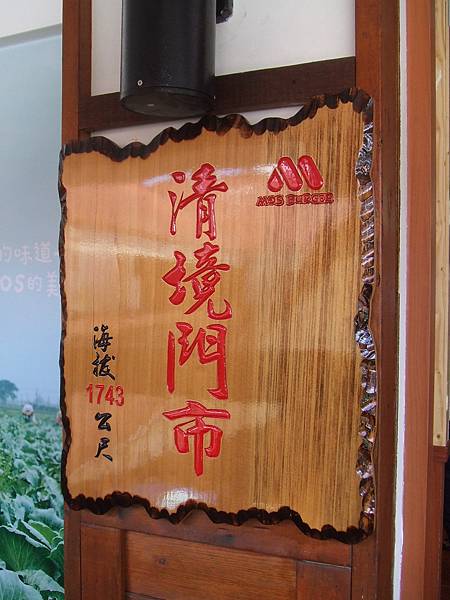 MOS BURGER
清境門市
海拔
1743
公尺
的味道
OS的美